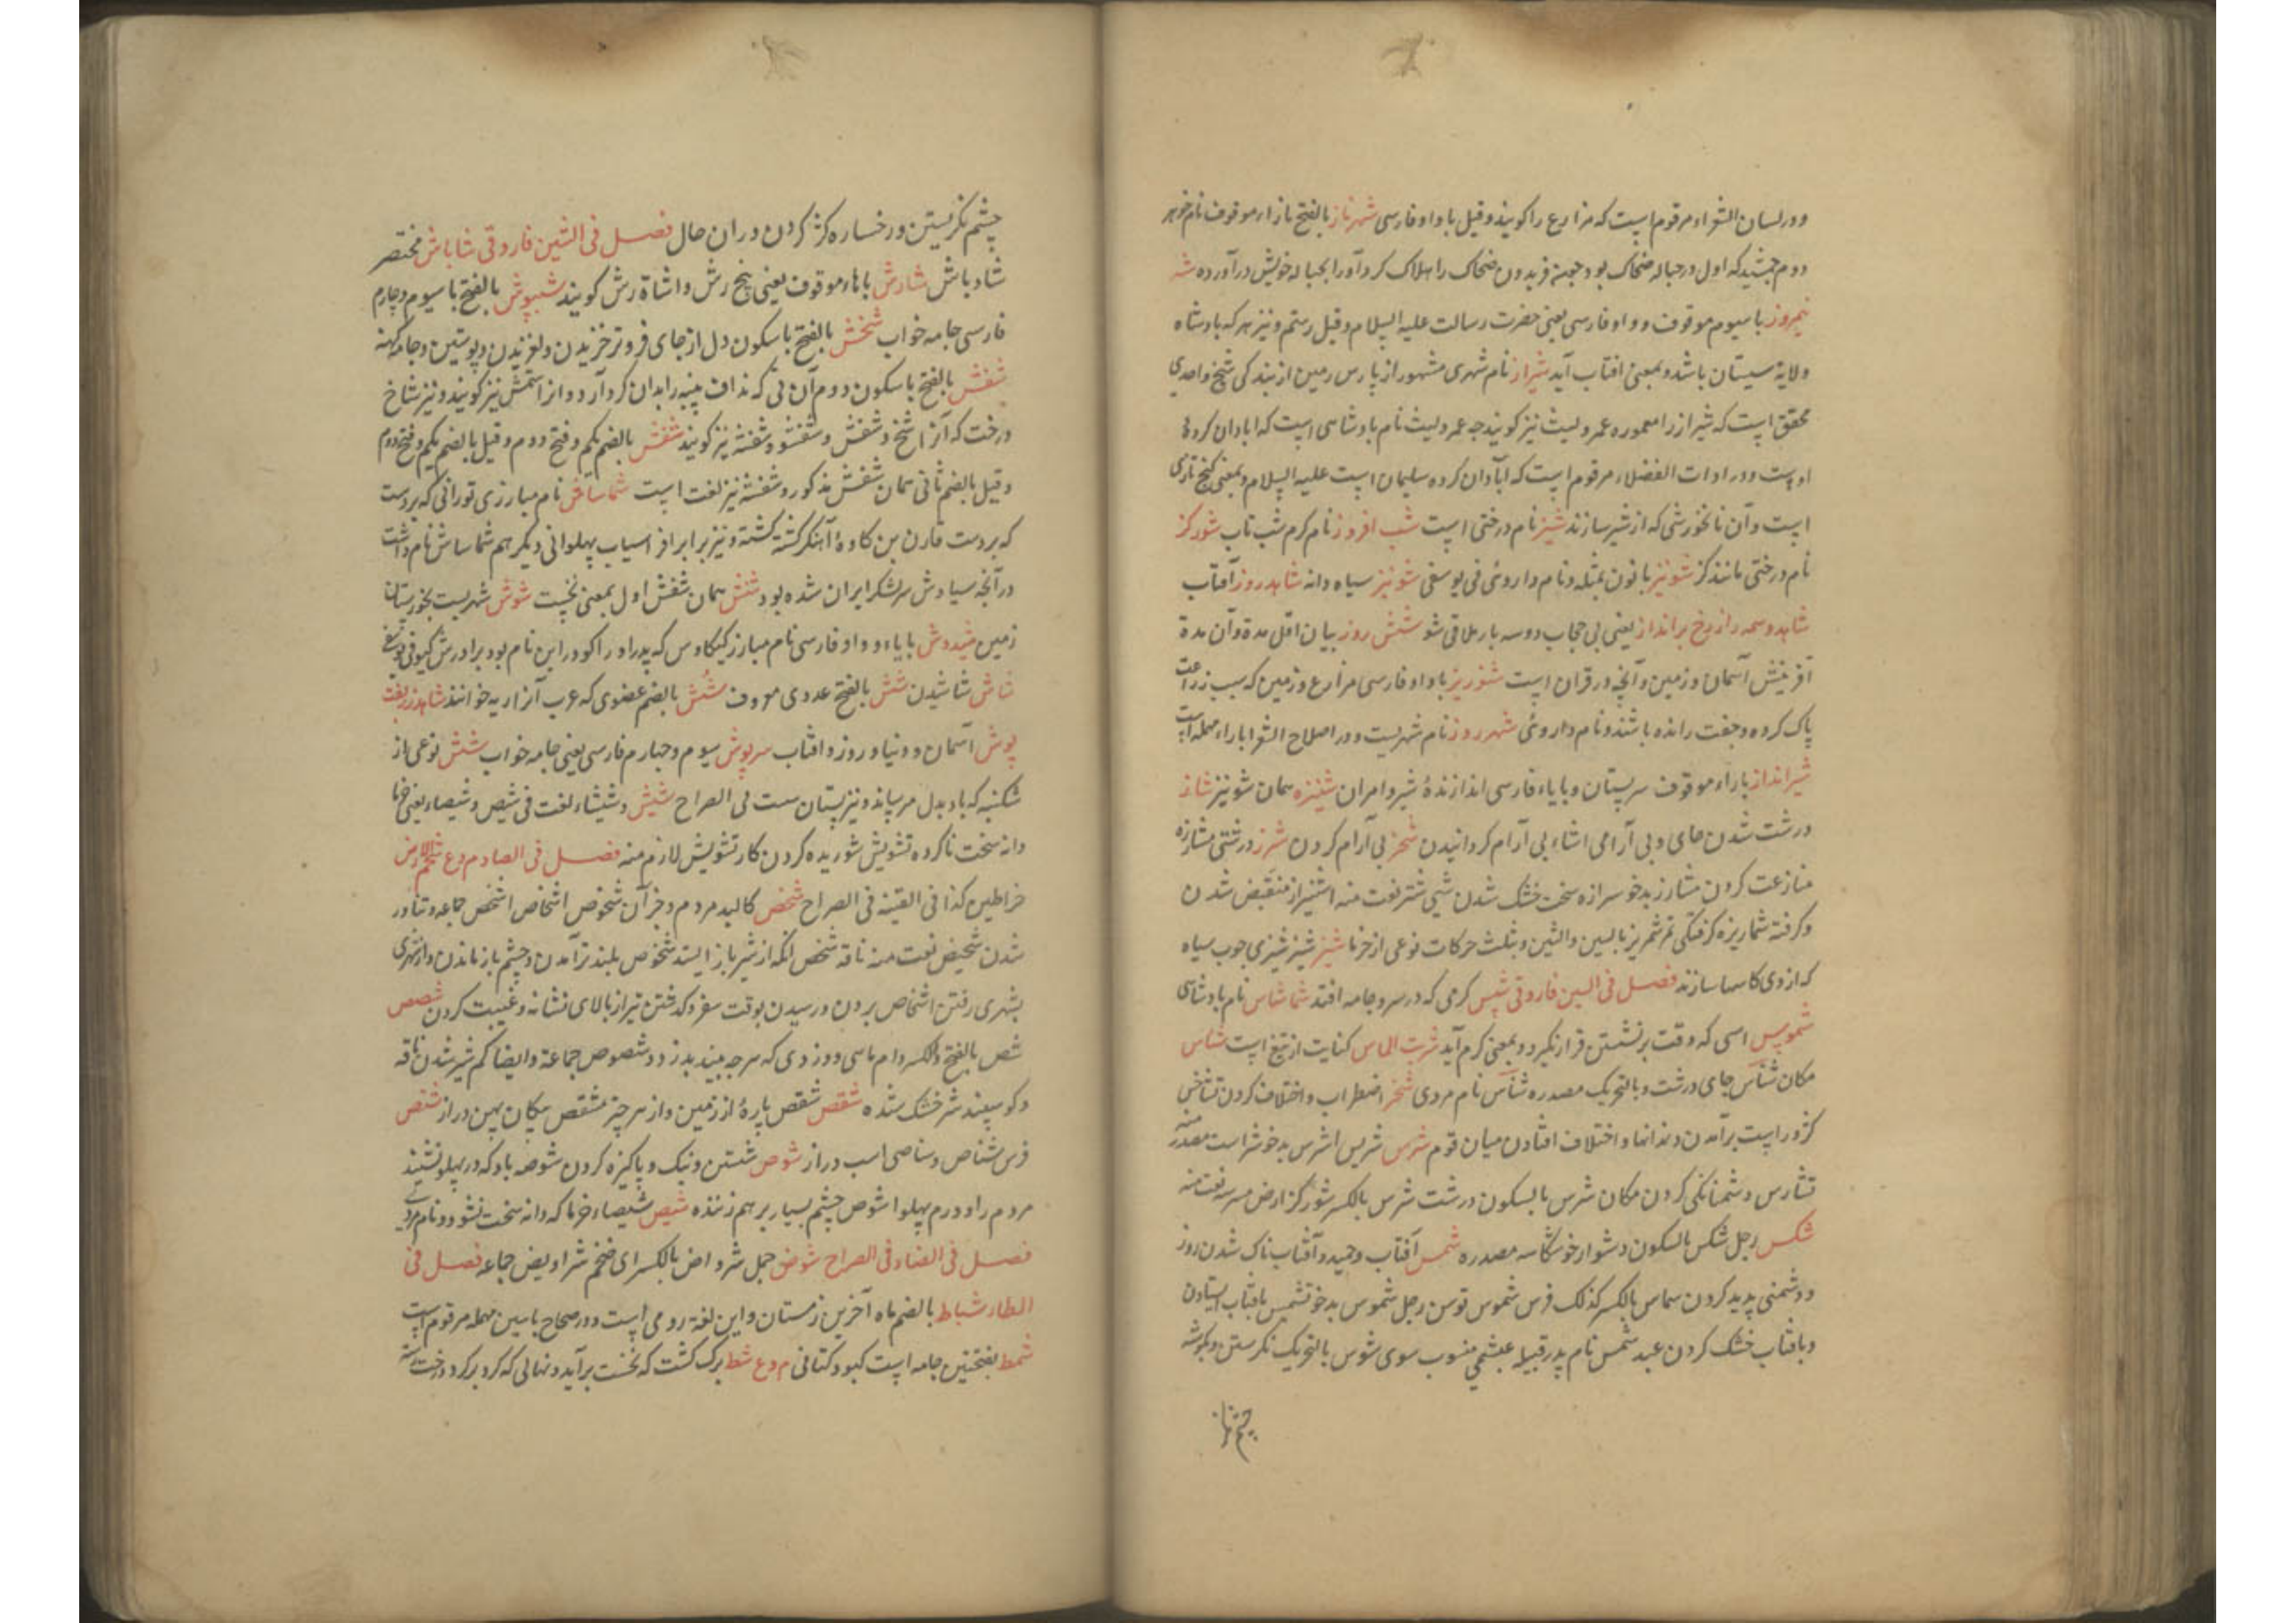 ودر لسان الشعراء مرقوم است که مزارع را گویند وقیل با واو فارسی شهرناز بالفتح بازاء موقوف نام خواهر
دوم جمشید که اول در حباله ضحاک بود چون فریدون ضحاک را هلاک کرد آورا بحباله خویش در آورده شه
نیمروز با سیوم موقوف وواو فارسی یعنی حضرت رسالت علیه السلام وقیل رستم ونیز هر که بادشاه
ولایة سیستان باشد وبمعنی افتاب آید شیراز نام شهری مشهور از پارس زمین از بندگی شیخ واحدی
محقق است که شیراز را معموره عمرو لیث نیز گویند چه عمرو لیث نام بادشاهی است که ابادان کرده
اوست ودر ادات الفضلاء مرقوم است که آبادان کرده سلیمان است علیه السلام وبمعنی کنخ تازی
است وآن نانخورشی که از شیر سازند شیز نام درختی است شب افروز نام کرم شب تاب شورکز
نام درختی مانند کز شونیز با نون بمثله ونام داروئی فی یوسفی شونیز سیاه دانه شاهد روز آفتاب
شاهد وسمه را از رخ برانداز یعنی بی حجاب دوسه بار ملاقی شو شش روز بیان اقل مدة وآن مدة
آفرینش آسمان وزمین وآنچه در قران است شوریز با واو فارسی مزارع وزمین که سبب زراعت
پاک کرده وجفت رانده باشند ونام داروئی شهرروز نام شهریست ودر اصلاح الشعرا باراء مهمله است
شیرانداز باراء موقوف سرپستان وبایاء فارسی اندازندهٔ شیر وامران شینزه همان شونیز شاز
درشت شدن جای وبی آرامی اشاء بی آرام گردانیدن شحز بی آرام کردن شرز درشتی مشارزه
منازعت کردن مشارز بدخو سرازه سخت خشک شدن شیی شتر نعت منه اشئیزاز منقبض شدن
وگرفته شماریزه گرفتگی تمر شهریز بالسین والشین وبثلث حرکات نوعی از خرما شیز شیزی چوب سیاه
که ازوی کاسها سازند فصل فی السین فاروقی شپس کرمی که در سر وجامه افتد شماشاس نام بادشاهی
شموس اسبی که وقت برنشستن قرار نگیرد وبمعنی کرم آید شربت الماس کنایت از تیغ است شاس
مکان شاس جای درشت وبالتحریک مصدره شأس نام مردی شخز اضطراب واختلاف کردن تشاخس
کژ وراست برآمدن دندانها واختلاف افتادن میان قوم شرس شریس اشرس بدخو شراست مصدر منه
تشارس دشمنانگی کردن مکان شرس بالسکون درشت شرس بالکسر شورگز ارض مسرسه نعت منه
شکس رجل شکس بالسکون دشوار خو شکاسه مصدره شمس آفتاب وحمیدو آفتاب ناک شدن روز
ودشمنی پدید کردن سماس بالکسر کذلک فرس شموس توسن رجل شموس بدخو تشمس بافتاب ایستادن
وبافتاب خشک کردن عبد شمس نام پدر قبیله عبشمی منسوب سوی شوس بالتحریک نگرستن وبگوشه
چشم نگر
چشم نگریستن ورخساره کژ کردن دران حال فصل فی الشین فاروقی شاباش مختصر
شاد باش شارش باهاء موقوف یعنی پنج رش واشاة رش گویند شبپوش بالفتح با سیوم وچارم
فارسی جامه خواب شخش بالفتح با سکون دل از جای فروتر خزیدن ولغزیدن وپوستین وجامه کهنه
شفش بالفتح با سکون دوم آن نی که نداف پنبه را بدان گرد آرد وانرا شمش نیز گویند ونیز شاخ
درخت که آنرا شخ وشفش وشفشو وشفشه نیز گویند شفش بالضم یکم وفتح دوم وقیل بالضم یکم وفتح دوم
وقیل بالضم ثانی همان شفش مذکور وشفشه نیز لغت است شماساش نام مبارزی تورانی که بردست
که بردست قارن بن کاوهٔ آهنگر کشته گشته ونیز برابر افراسیاب پهلوانی دیگر هم شماساش نام داشت
در آنچه سیاوش سر لشکر ایران شده بود شنش همان شفش اول بمعنی نخست شوش شهریست بخوزستان
زمین شیدوش بایاء وواو فارسی نام مبارز کیکاوس که پدر اورا گودر این نام بود برادرش گیو فی یوسفی
شاش شاشیدن شش بالفتح عددی معروف شش بالضم عضوی که عرب آنرا ریه خوانند شاهد زربفت
پوش آسمان ودنیا وروز وافتاب سرپوش سیوم وچهارم فارسی یعنی جامه خواب شش نوعی از
شکنبه که باد بدل میرساند ونیز پستان ست فی الصراح شیش وشیشاء لغت فی شیص وشیصاء یعنی خرما
دانه سخت ناکرده تشویش شوریده کردن کار تشویش لازم منه فصل فی الصاد م وع شحم الارض
خراطین کذا فی القنیه فی الصراح شخص کالبد مردم وجز آن شخوص اشخاص اشخص جماعه وتناور
شدن شخیص نعت منه ناقه شخص انکه از شیر باز ایستد شخوص بلند برآمدن وچشم باز ماندن واز شهری
بشهری رفتن اشخاص بردن ورسیدن بوقت سفر وگذشتن تیر از بالای نشانه وغیبت کردن شصص
شص بالفتح والکسر دام ماهی ودزدی که هرچه بیند بدزدد شصوص جماعة وایضا کم شیر شدن ناقه
وگوسپند شیر خشک شده شقص شقص پارهٔ از زمین واز هر چیز مشقص پیکان پهن دراز شنص
فرس شناص وسناصی اسب دراز شوص شستن ونیک وپاکیزه کردن شوصه باد که در پهلو نشیند
مردم را وورم پهلو اشوص چشم بسیار بر هم زننده شیص شیصاء خرما که دانه سخت نشود ونام مردی
فصل فی الضاد فی الصراح شرض جمل شرواض بالکسر ای ضخم شراویض جماعه فصل فی
الطاء شباط بالضم ماه آخرین زمستان واین لغة رومی است ودر صحاح باسین مهمله مرقوم است
شمط بفتحتین جامه است کبود کتانی م وع شط برگ کشت که نخست برآید ونهالی که گرد برگرد درخت رسته